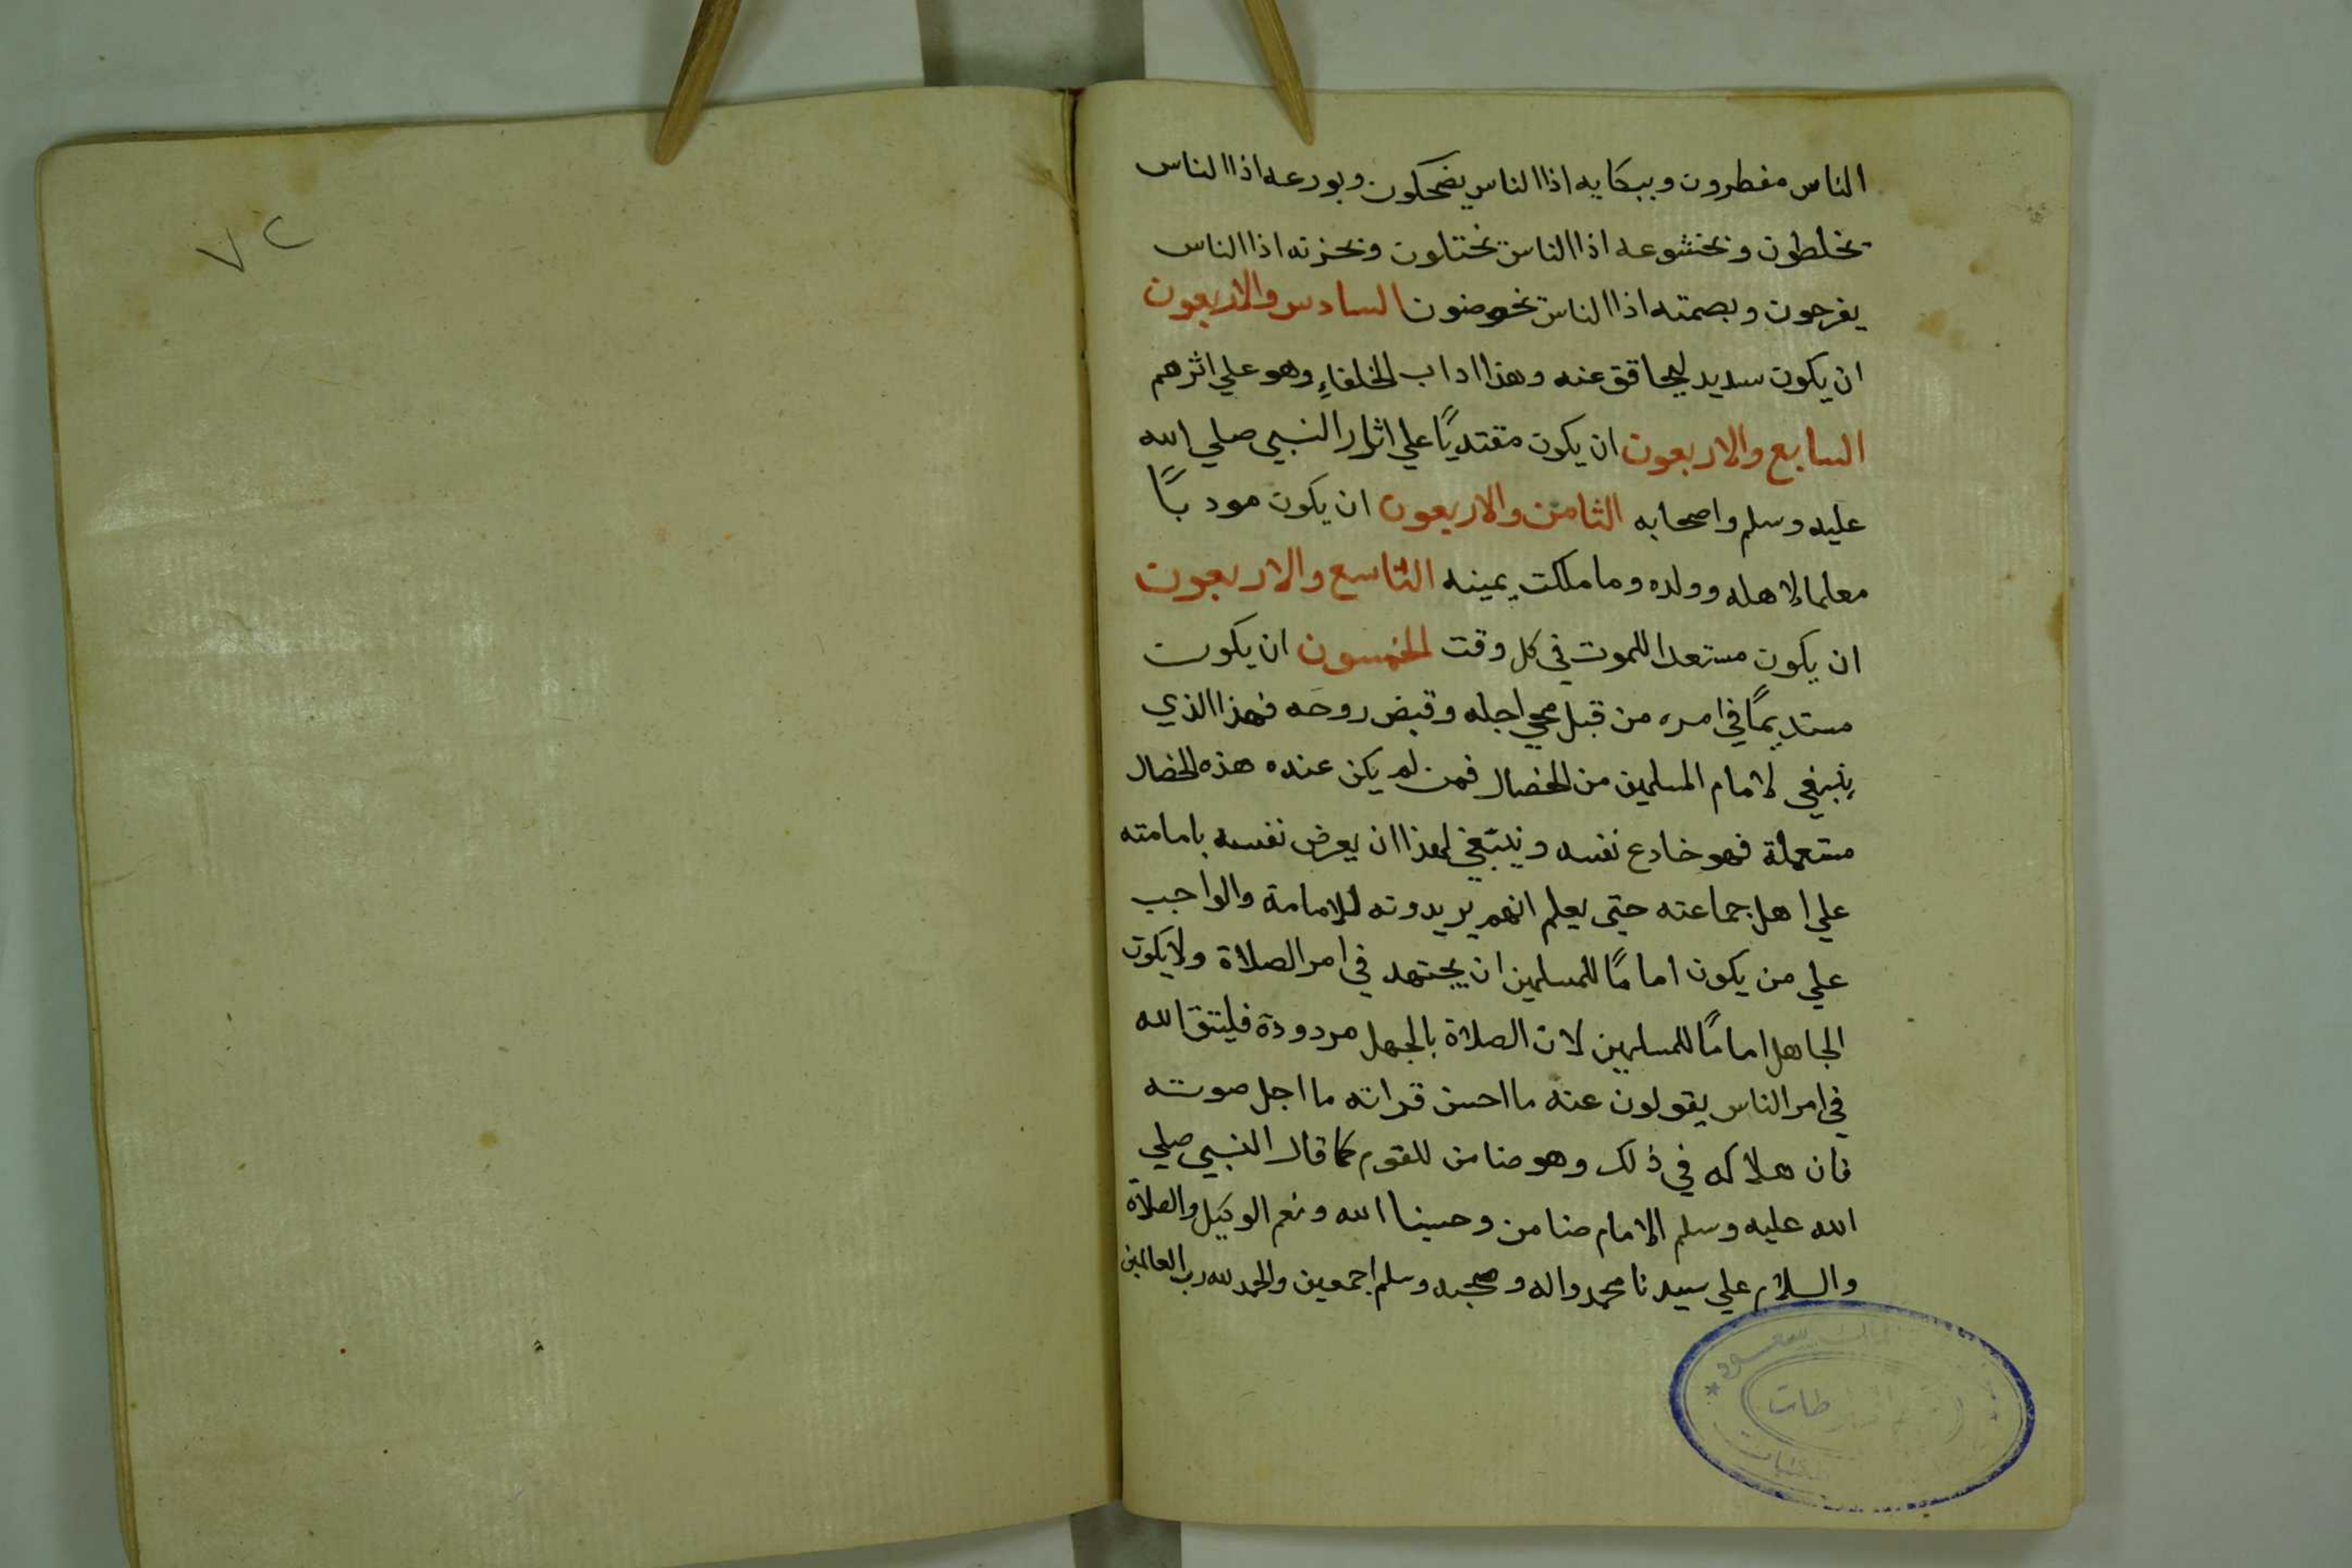 الناس مفطرون وببكايه اذا الناس يضحكون وبورعه اذا الناس
يخلطون وبخشوعه اذا الناس يختلون وبحزنه اذا الناس
يفرحون وبصمته اذا الناس يخوضون السادس والاربعون
ان يكون سديد وهذا اداب الخلفاءِ وهو علي اثرهم
السابع والاربعون ان يكون مقتديًا علي اثار النبي صلي الله
عليه وسلم واصحابه الثامن والاربعون ان يكون مودبًا
معلما لاهله وولده وما ملكت يمينه التاسع والاربعون
ان يكون مستعدا للموت في كل وقت الخمسون ان يكون
مستديمًا في امره من قبل مجي اجله وقبض روحه فهذا الذي
ينبغي لامام المسلمين من الخصال فمن لم يكن عنده هذه الخصال
مستعملة فهو خادع نفسه وينبغي لهذا ان يعرض نفسه بامامته
علي اهل جماعته حتي يعلم انهم يريدونه للامامة والواجب
علي من يكون امامًا للمسلمين ان يجتهد في امر الصلاة ولا يكون
الجاهل امامًا للمسلمين لان الصلاة بالجهل مردودة فليتق الله
في امر الناس يقولون عنه ما احسن قراته ما اجل صوته
فان هلاكه في ذلك وهو ضامن للقوم كما قال النبي صلي
الله عليه وسلم الامام ضامن وحسبنا الله ونعم الوكيل والصلاة
والسلام علي سيدنا محمد واله وصحبه وسلم اجمعين والحمد لله رب العالمين
٧٢